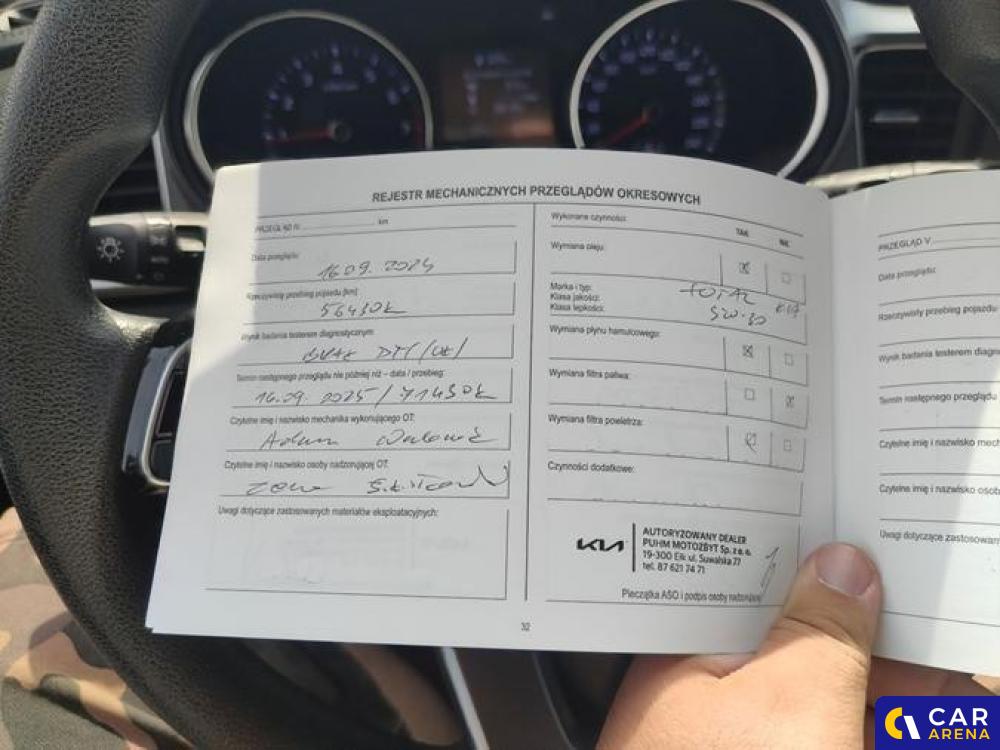 REJESTR MECHANICZNYCH PRZEGLĄDÓW OKRESOWYCH
PRZEGLĄD IV ........ km
Data przeglądu:
16.09.2024
Rzeczywisty przebieg pojazdu [km]
56430
Wynik badania testerem diagnostycznym:
BRAK DTC (OK)
Termin następnego przeglądu nie później niż – data / przebieg:
16.09.2025 / 71430
Czytelne imię i nazwisko mechanika wykonującego OT:
Adam
Czytelne imię i nazwisko osoby nadzorującej OT:
Uwagi dotyczące zastosowanych materiałów eksploatacyjnych:
Wykonane czynności:
TAK NIE
Wymiana oleju:
Marka i typ:
Klasa jakości:
Klasa lepkości:
TOTAL
5W-30
Wymiana płynu hamulcowego:
Wymiana filtra paliwa:
Wymiana filtra powietrza:
Czynności dodatkowe:
KIA
AUTORYZOWANY DEALER
PUHM MOTOZBYT Sp. z o. o.
19-300 Ełk ul. Suwalska 77
tel. 87 621 74 71
Pieczątka ASO i podpis osoby nadzorującej
32
PRZEGLĄD V
Data przeglądu:
Rzeczywisty przebieg pojazdu
Wynik badania testerem diagno
Termin następnego przeglądu
Czytelne imię i nazwisko mech
Czytelne imię i nazwisko osob
Uwagi dotyczące zastosowan
CAR
ARENA